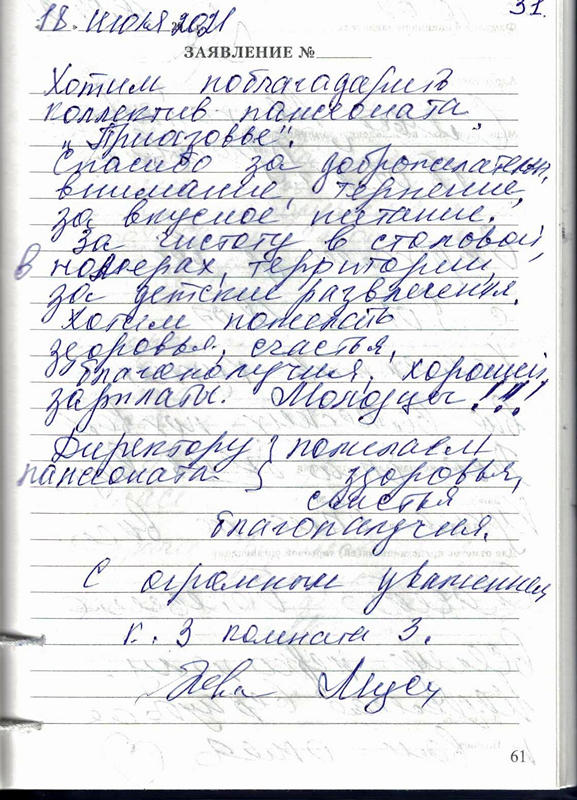 31.
18. июля 2021
ЗАЯВЛЕНИЕ №
Хотим поблагадарить
коллектив пансеоната
„Приазовье".
Спасибо за доброжелательн,
внимание, терпение,
за вкусное питание.
За чистоту в столовой,
в номерах, территории,
за детские развлечения.
Хотим пожелать
здоровья, счастья,
благополучия, хорошей
зарплаты. Молодцы!!!
Директору } пожелаем
пансеоната } здоровья,
счастья
благополучия.
С огромным уважением
к. 3 комната 3.
61